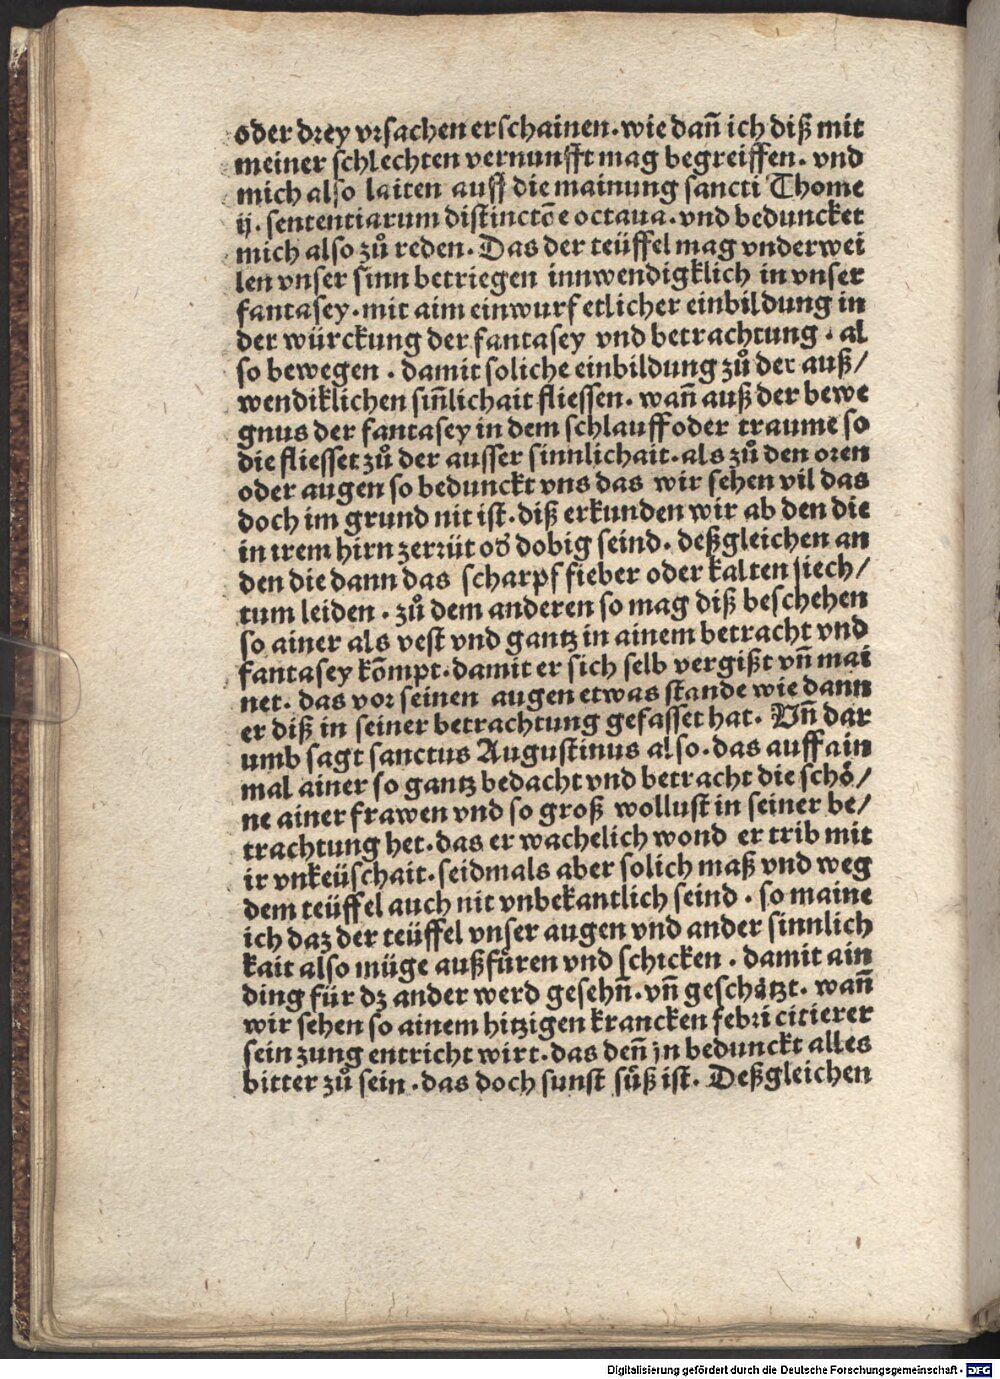 oder drey vrsachen erschainen. wie dañ ich diß mit
meiner schlechten vernunfft mag begreiffen. vnd
mich also laiten auff die mainung sancti Thome
ij. sententiarum distinctōe octaua. vnd beduncket
mich also zů reden. Das der teüffel mag vnderwei
len vnser sinn betriegen innwendigklich in vnser
fantasey. mit aim einwurf etlicher einbildung in
der würckung der fantasey vnd betrachtung. al
so bewegen. damit soliche einbildung zů der auß/
wendiklichen siñlichait fliessen. wañ auß der bewe
gnus der fantasey in dem schlauff oder traume so
die fliesset zů der ausser sinnlichait. als zů den oren
oder augen so bedunckt vns das wir sehen vil das
doch im grund nit ist. diß erkunden wir ab den die
in irem hirn zerrüt oď dobig seind. deßgleichen an
den die dann das scharpf fieber oder kalten siech/
tum leiden. zů dem anderen so mag diß beschehen
so ainer als vest vnd gantz in ainem betracht vnd
fantasey kōmpt. damit er sich selb vergißt vñ mai
net. das vor seinen augen etwas stande wie dann
er diß in seiner betrachtung gefasset hat. Vñ dar
umb sagt sanctus Augustinus also. das auff ain
mal ainer so gantz bedacht vnd betracht die schö/
ne ainer frawen vnd so groß wollust in seiner be/
trachtung het. das er wachelich wond er trib mit
ir vnkeüschait. seidmals aber solich maß vnd weg
dem teüffel auch nit vnbekantlich seind. so maine
ich daz der teüffel vnser augen vnd ander sinnlich
kait also müge außfüren vnd schicken. damit ain
ding für dz ander werd gesehñ. vñ geschätzt. wañ
wir sehen so ainem hitzigen krancken febricitierer
sein zung entricht wirt. das deñ jn bedunckt alles
bitter zů sein. das doch sunst süß ist. Deßgleichen
Digitalisierung gefördert durch die Deutsche Forschungsgemeinschaft - DFG